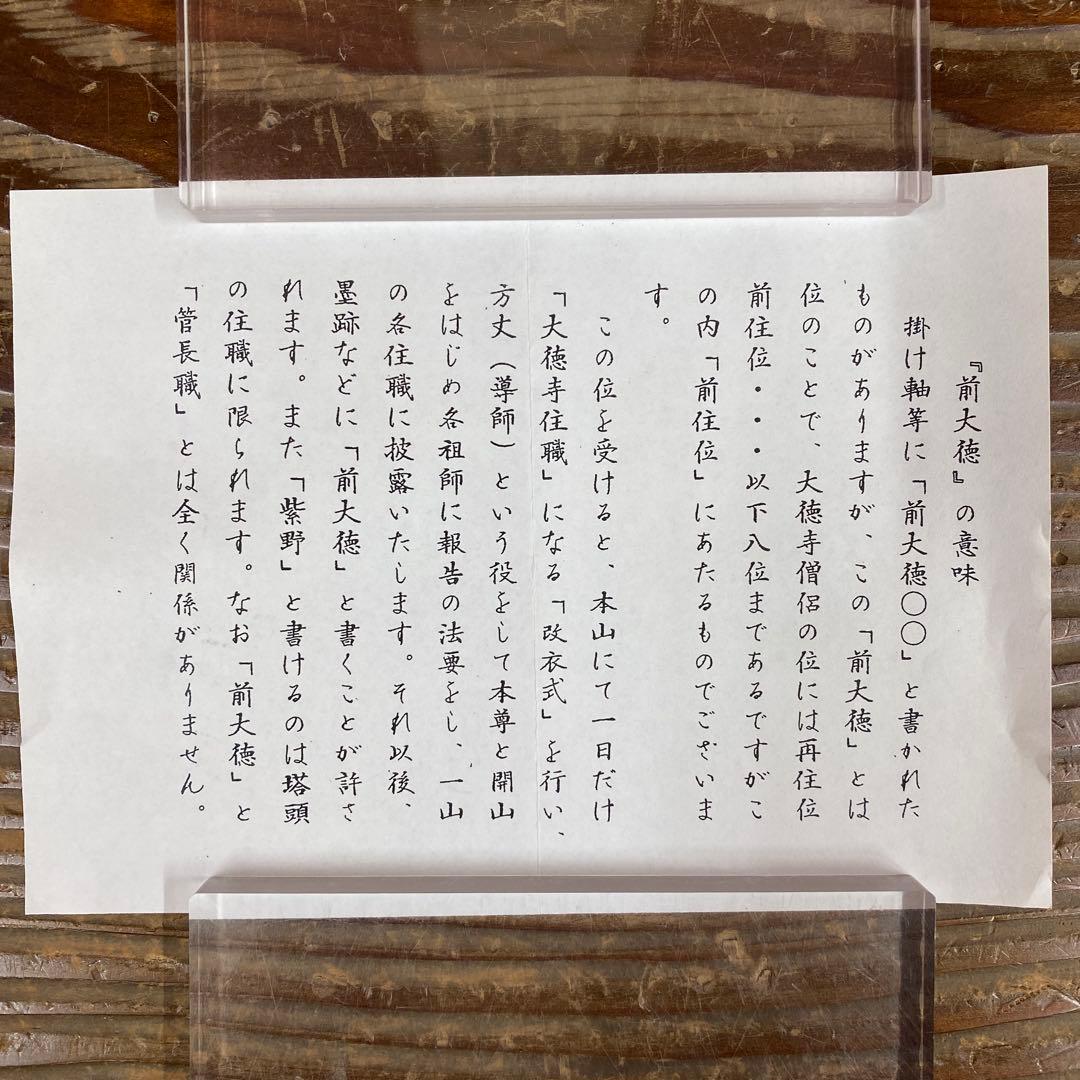 『前大徳』の意味
掛け軸等に「前大徳〇〇」と書かれた
ものがありますが、この「前大徳」とは
位のことで、大徳寺僧侶の位には再住位
前住位・・・以下八位まであるですがこ
の内「前住位」にあたるものでございま
す。
この位を受けると、本山にて一日だけ
「大徳寺住職」になる「改衣式」を行い、
方丈(導師)という役をして本尊と開山
をはじめ各祖師に報告の法要をし、一山
の各住職に披露いたします。それ以後、
墨跡などに「前大徳」と書くことが許さ
れます。また「紫野」と書けるのは塔頭
の住職に限られます。なお「前大徳」と
「管長職」とは全く関係がありません。